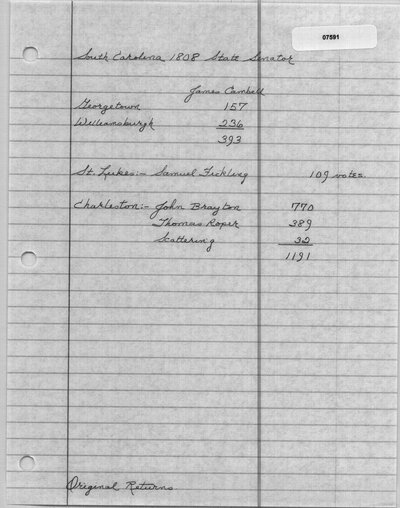 07591
South Carolina 1808 State Senator
James Cambell
Georgetown 157
Williamsburgh 236
393
St. Lukes:- Samuel Fickling 109 votes
Charleston:- John Brayton 770
Thomas Roper 389
Scattering 32
1191
Original Returns